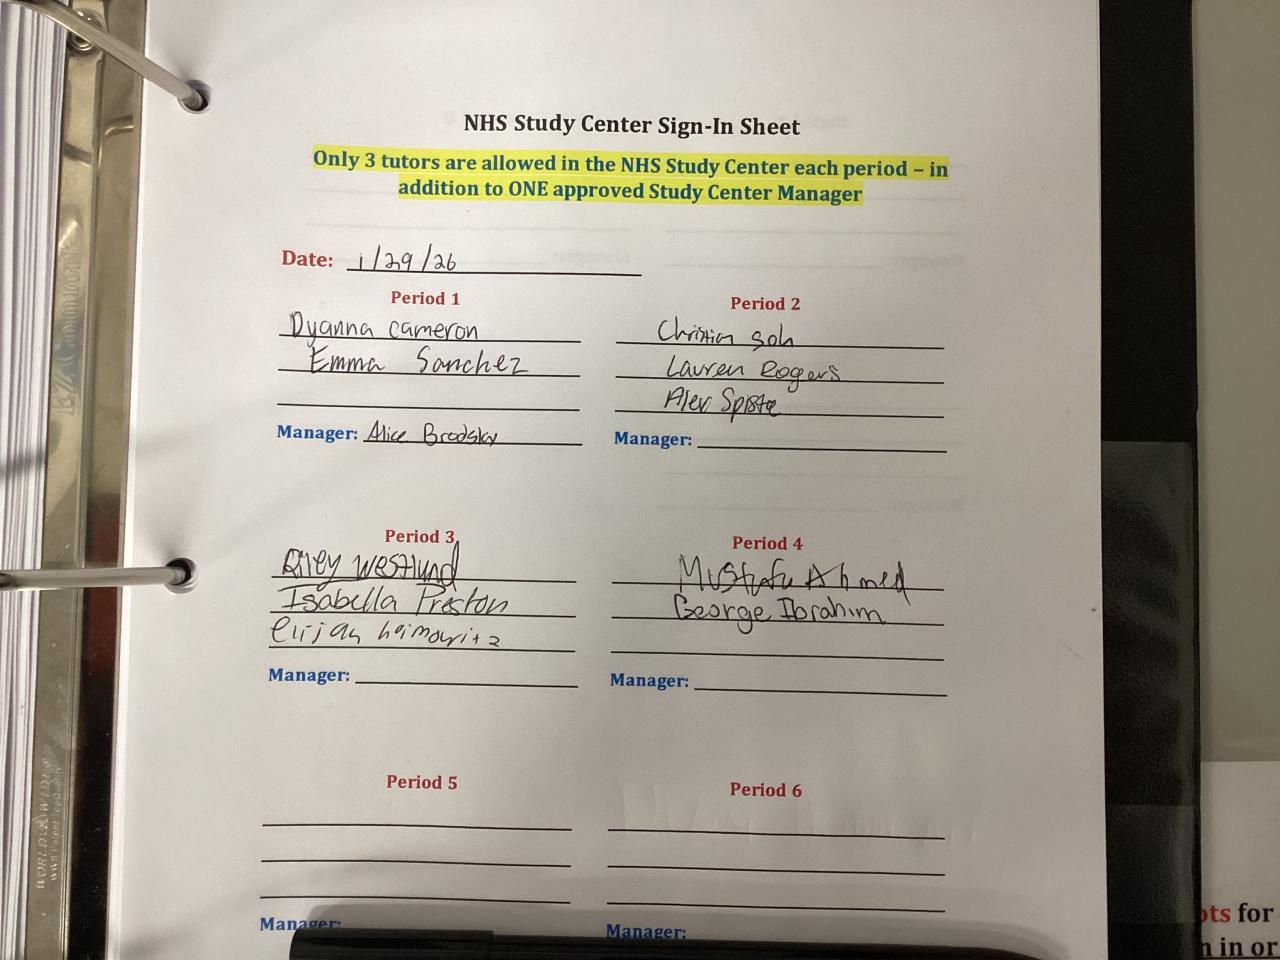 NHS Study Center Sign-In Sheet
Only 3 tutors are allowed in the NHS Study Center each period – in
addition to ONE approved Study Center Manager
Date: 1/29/26
Period 1
Dyanna Cameron
Emma Sanchez
Manager: Alice Brodsky
Period 2
Christian Soh
Lauren Rogers
Alex
Manager:
Period 3
Riley Westlund
Isabella Preston
Elijah haimowitz
Manager:
Period 4
Mustafa Ahmed
George Ibrahim
Manager:
Period 5
Manager:
Period 6
Manager:
WORLD WIDE
for
in or